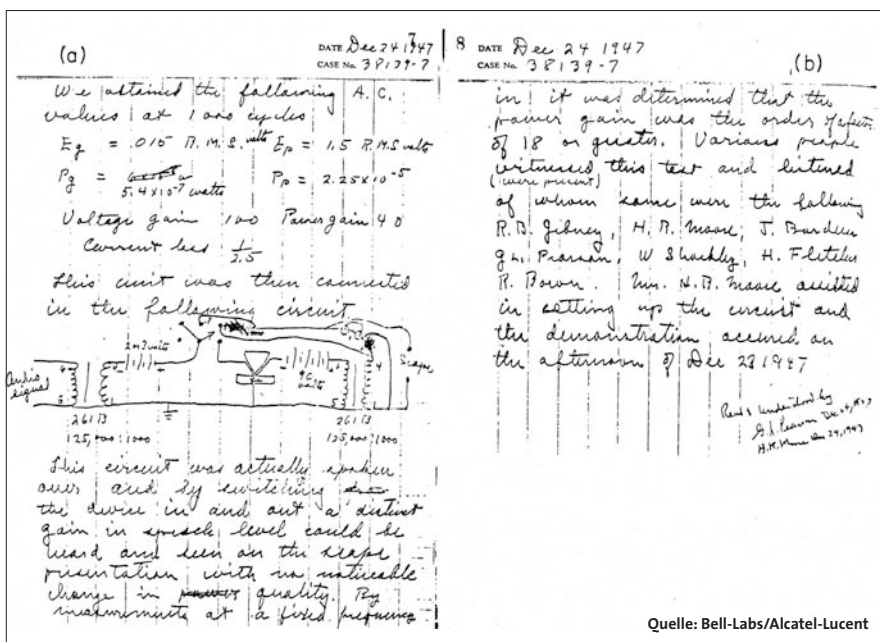 (a)
DATE Dec 24 1947
CASE No. 38139-7
We obtained the following A.C.
values at 1000 cycles
Eg = .015 R.M.S. volts Ep = 1.5 R.M.S volts
Pg =
5.4 x 10-7 watts Pp = 2.25 x 10-5
Voltage gain 100 Power gain 40
Current loss 1/2.5
This unit was then connected
in the following circuit
Audio
signal
Scope
261B
125,000:1000
261B
125,000:1000
This circuit was actually spoken
over and by switching
the device in and out a distinct
gain in speech level could be
heard and seen on the scope
presentation with no noticeable
change in quality. By
measurements at a fixed frequency
8 DATE Dec 24 1947
CASE No. 38139-7
(b)
in it was determined that the
power gain was the order of a factor
of 18 or greater. Various people
witnessed this test and listened
(were present)
of whom some were the following
R.B. Gibney, H.R. Moore, J. Bardeen
G.L. Pearson, W Shockley, H. Fletcher
R. Bown. Mr. H.R. Moore assisted
in setting up the circuit and
the demonstration occurred on
the afternoon of Dec 23 1947
Read & understood by
G.L. Pearson Dec 24, 1947
H.R. Moore Dec 24, 1947
Quelle: Bell-Labs/Alcatel-Lucent